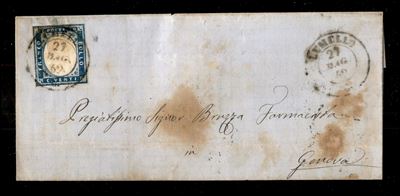 FRANCO
POSTE
BOLLO
C. VENTI
27
MAG
62
27
MAG
62
Pregiatissimo Signor Farmacista
in
Genova